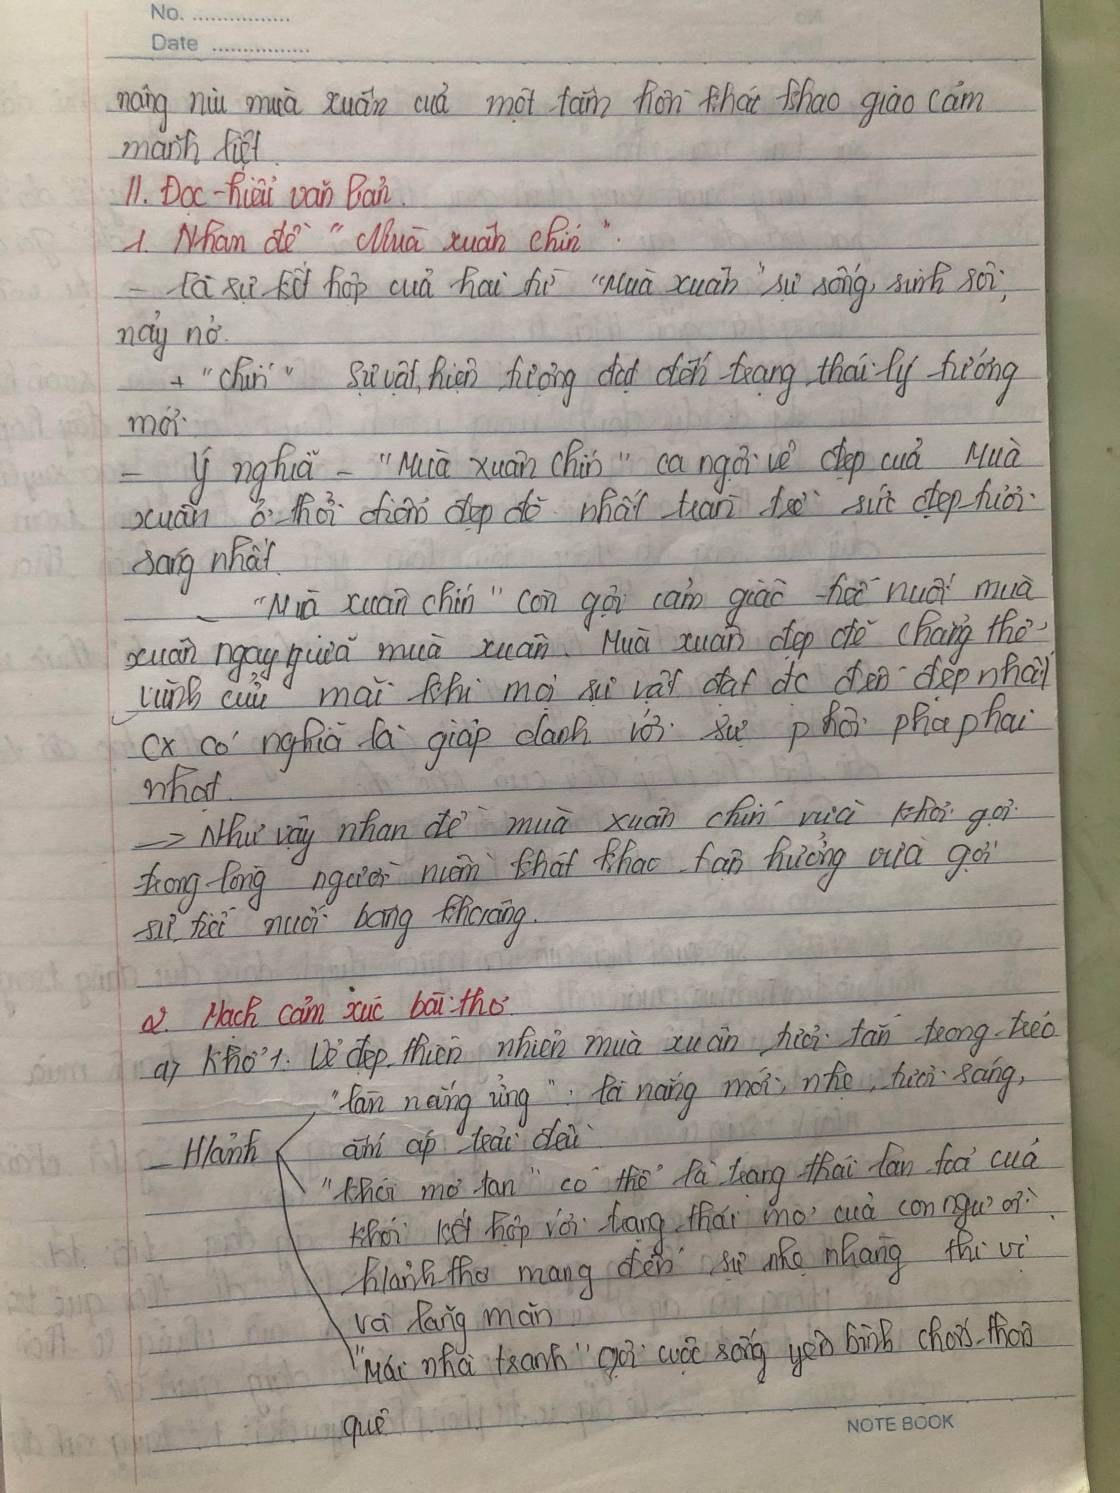 No. ................
Date ................
nâng niu mùa xuân của một tâm hồn khát khao giao cảm
mãnh liệt.
II. Đọc-hiểu văn bản.
1. Nhan đề "Mùa xuân chín".
- là sự kết hợp của hai từ "Mùa xuân" sự sống, sinh sôi,
nảy nở.
+ "chín" sự vật, hiện tượng đạt đến trạng thái lý tưởng
mới.
- Ý nghĩa - "Mùa xuân chín" ca ngợi vẻ đẹp của Mùa
xuân ở thời điểm đẹp đẽ nhất tràn trề sức đẹp tươi
sáng nhất.
- "Mùa xuân chín" còn gợi cảm giác tiếc nuối mùa
xuân ngay giữa mùa xuân. Mùa xuân đẹp đẽ chẳng thể
vĩnh cửu mãi khi mọi sự vật đạt đc đến đẹp nhất
cx có nghĩa là giáp danh với sự phôi pha phai
nhạt.
-> Như vậy nhan đề mùa xuân chín vừa khơi gợi
trong lòng người niềm khát khao tận hưởng vừa gợi
sự tiếc nuối bâng khuâng.
2. Mạch cảm xúc bài thơ
a) Khổ 1. Vẻ đẹp thiên nhiên mùa xuân tươi tắn trong trẻo
"làn nắng ửng": là nắng mới, nhẹ, tươi sáng,
- H/ảnh ấm áp trải đều
"khói mơ tan" có thể là trạng thái tan loả của
khói kết hợp với trạng thái mơ của con người.
h/ảnh thơ mang đến sự nhẹ nhàng thi vị
và lãng mạn
"Mái nhà tranh" gợi cuộc sống yên bình chốn thôn
quê
NOTE BOOK